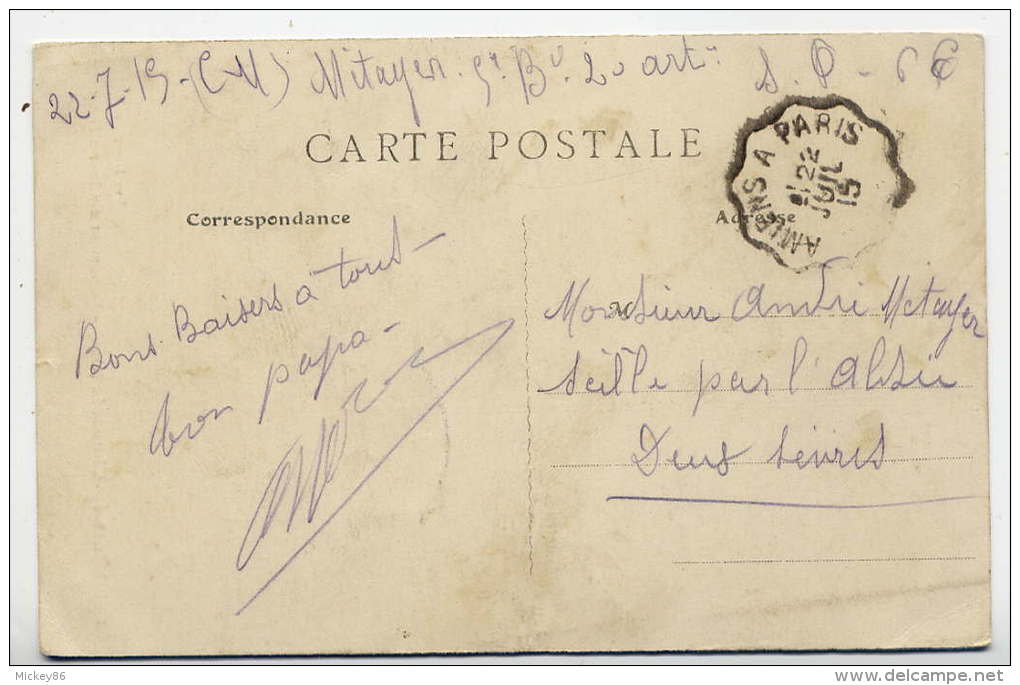 22-7-15-(CM) Mitayer. 5e Bie 20 arte S.P-68
CARTE POSTALE
AMIENS A PARIS
22
JUIL
15
Correspondance
Adresse
Bons Baisers à tout
bon papa-
Monsieur André Métayer
Seillé par l'Absie
Deux Sèvres
Mickey86
www.delcampe.net